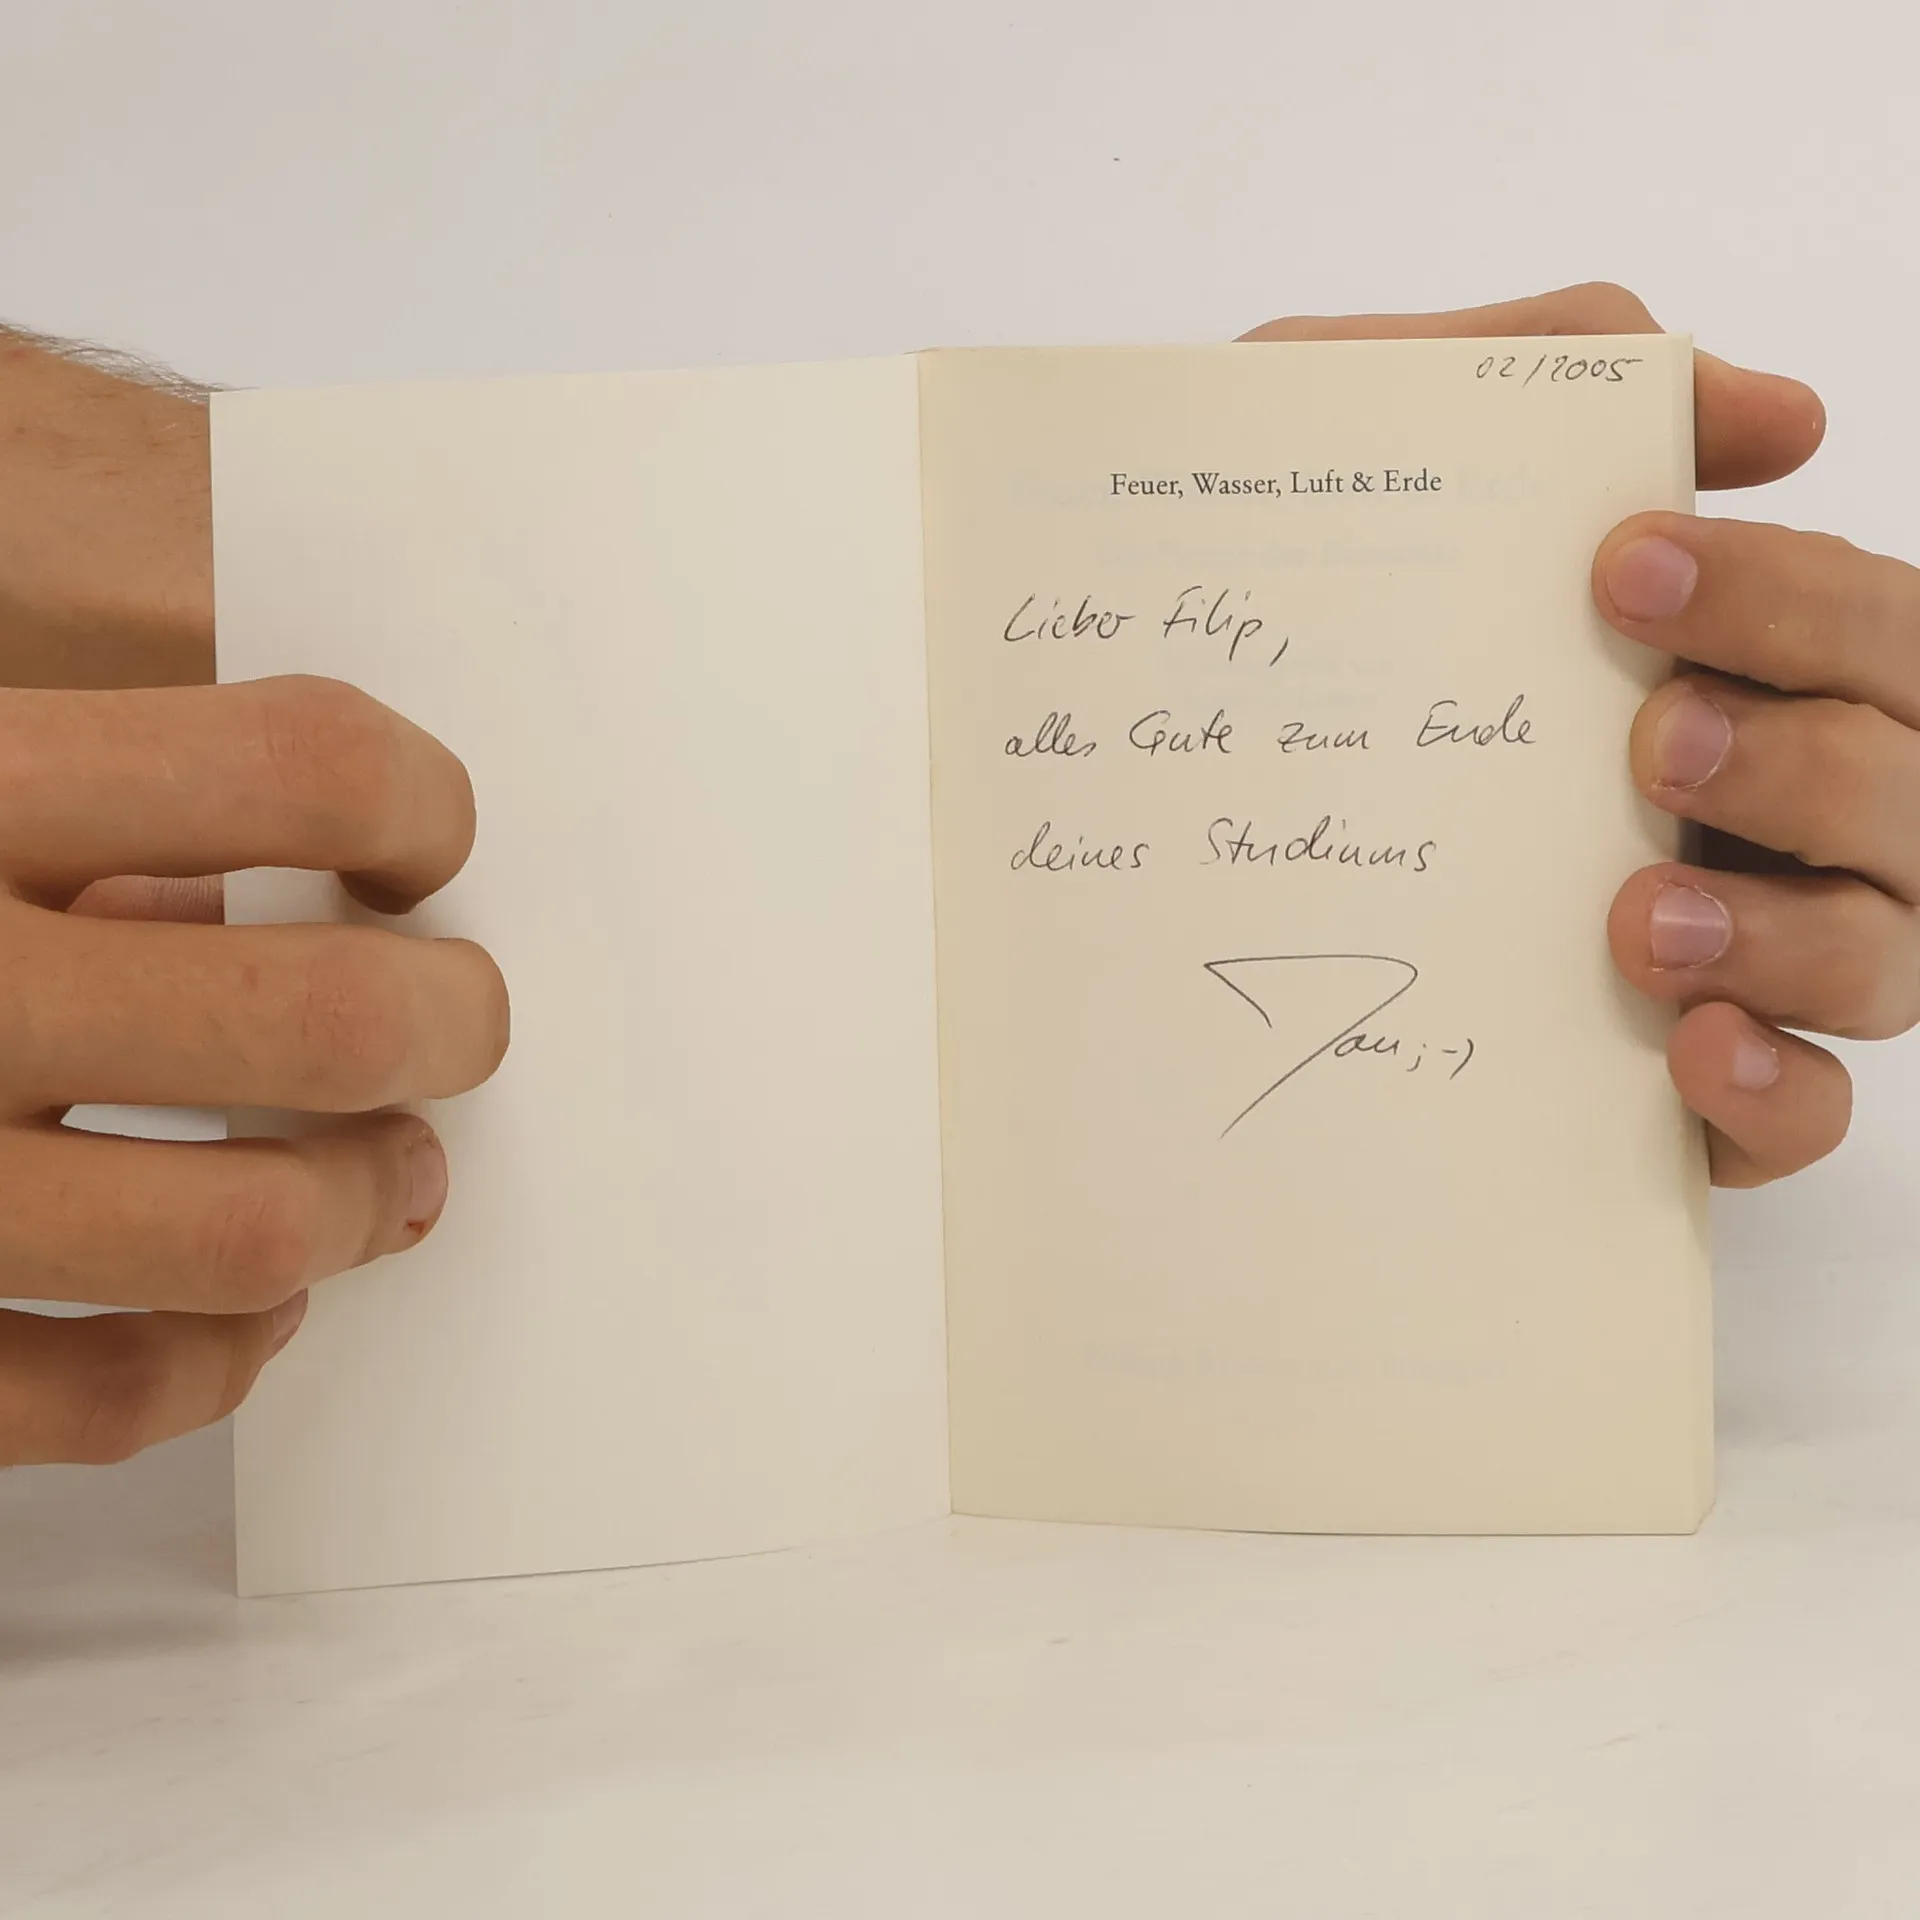 02/2005
Feuer, Wasser, Luft & Erde
Lieber Filip,
alles Gute zum Ende
deines Studiums
Jan ;-)